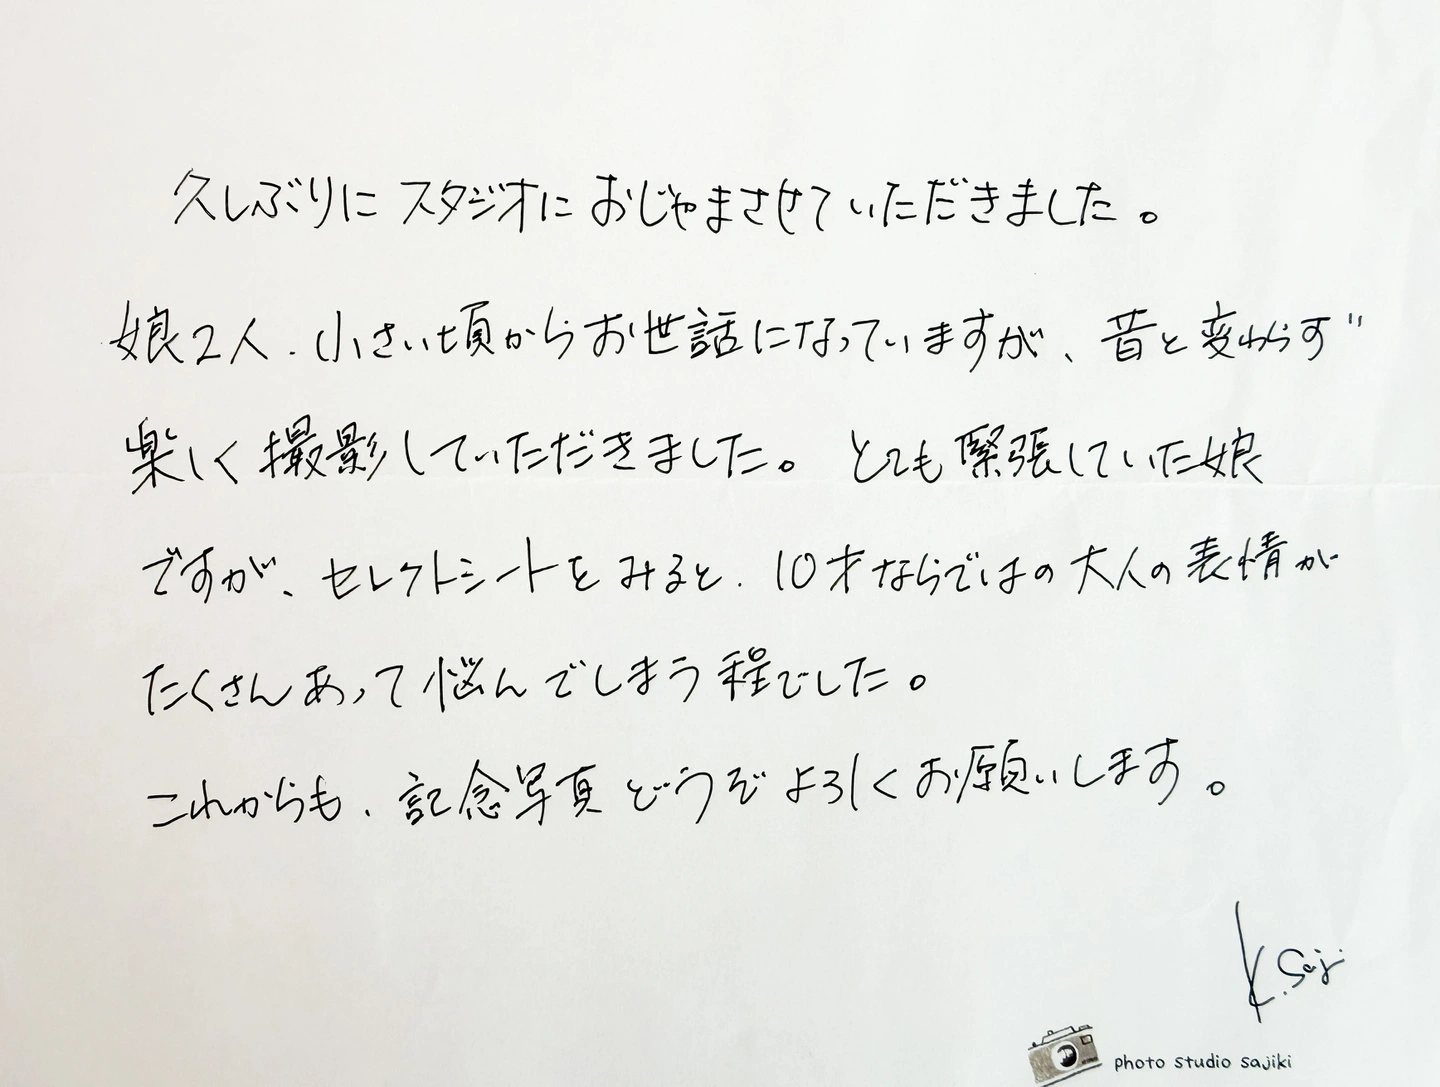 久しぶりに スタジオに おじゃまさせていただきました。
娘2人、小さい頃からお世話になっていますが、昔と変わらず
楽しく撮影していただきました。とても緊張していた娘
ですが、セレクトシートをみると、10才ならではの大人の表情が
たくさんあって悩んでしまう程でした。
これからも、記念写真どうぞよろしくお願いします。
K. Saji
photo studio sajiki